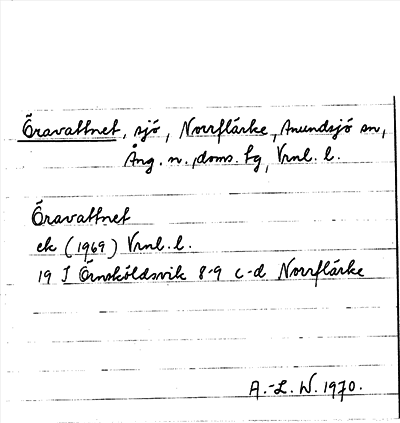 Öravattnet, sjö, Norrflärke, Anundsjö sn,
Ång. n. doms. fg, Vrnl. l.
Öravattnet
ek (1969) Vrnl. l.
19 I Örnsköldsvik 8-9 c-d Norrflärke
A.-L. W. 1970.